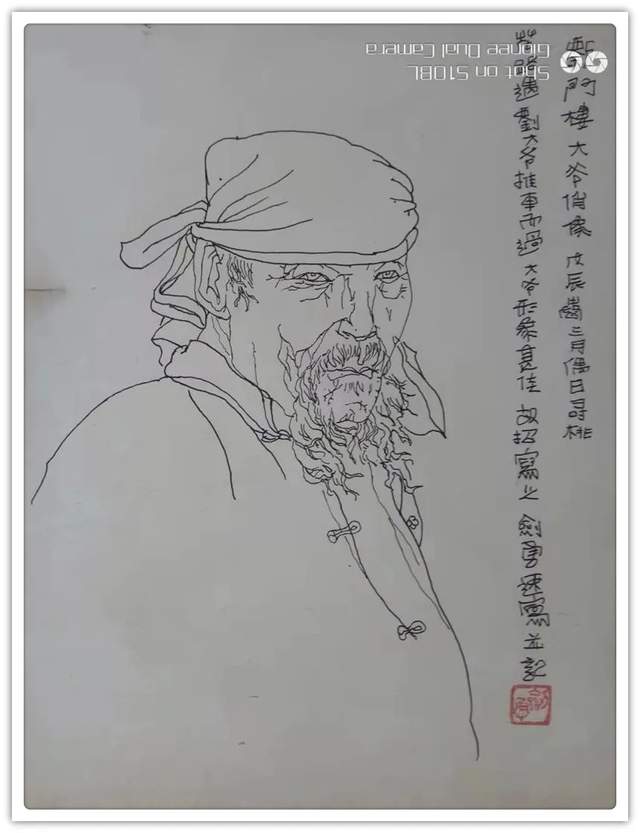 門樓大爷肖像戊辰歲三月偶日尋桃
遇劉大爷推車而過大爷形象甚佳故招寫之劍勇速寫並記
Shot on S10BL
Gionee Dual Camera